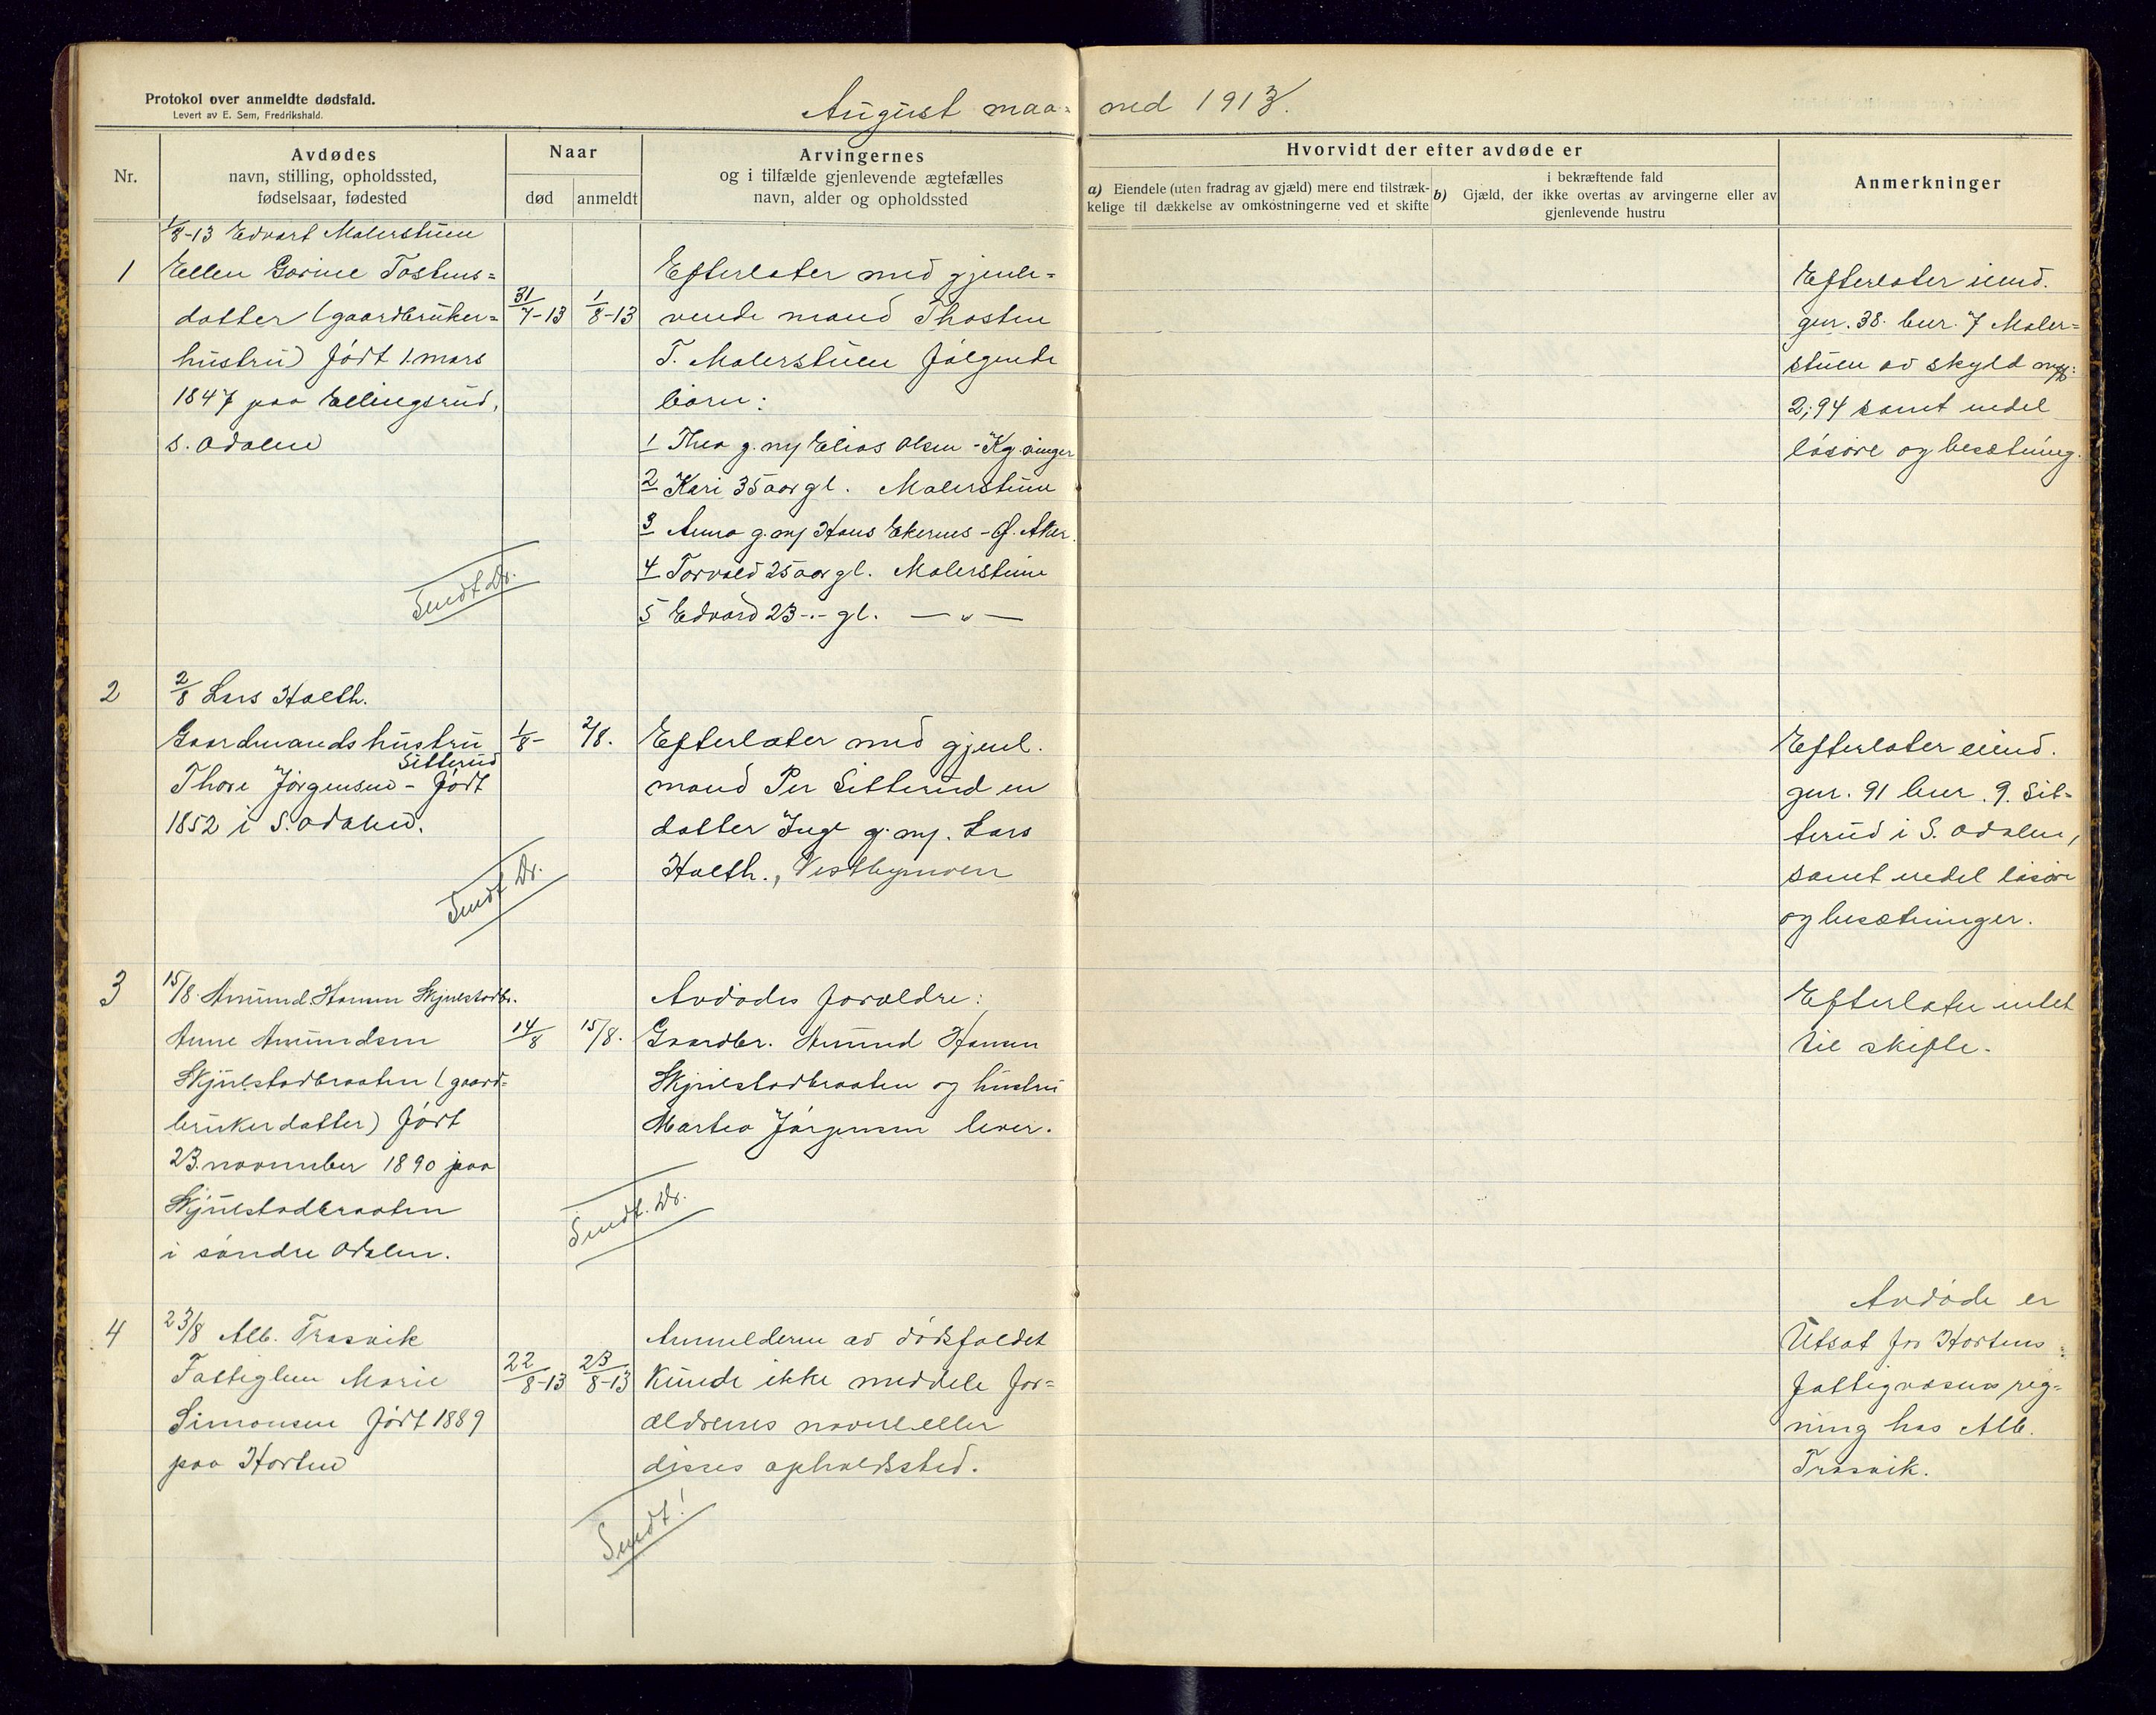 Protokol over anmeldte dødsfald.
Levert av E. Sem, Fredrikshald.
August maa-
ned 1913.
Nr.
Avdødes
navn, stilling, opholdssted,
fødselsaar, fødested
Naar
død
anmeldt
Arvingernes
og i tilfælde gjenlevende ægtefælles
navn, alder og opholdssted
Hvorvidt der efter avdøde er
a) Eiendele (uten fradrag av gjæld) mere end tilstræk-
kelige til dækkelse av omkostningerne ved et skifte
i bekræftende fald
b) Gjæld, der ikke overtas av arvingerne eller av
gjenlevende hustru
Anmerkninger
1
1/8-13 Edvart Malerstuen
Ellen Gorine Tostens=
datter (gaardbruker=
hustru) født 1. mars
1847 paa Ellingsrud,
S. Odalen
31/7-13
1/8-13
Efterlater med gjenle=
vende mand Thosten
T. Malerstuen følgende
børn:
1 Thea g. m/ Elias Olsen - Kg.vinger
2 Kari 35 aar gl. Malerstuen
3 Anna g. m/ Hans Ekernes - Ø. Aker.
4 Torvald 25 aar gl. Malerstuen
5 Edvard 23 -.- gl. — " —
Efterlater eiend.
gnr. 38. bnr. 7 Maler=
stuen av skyld
2,94 samt endel
løsøre og besætning.
Sendt Dr.
2
2/8 Lars Holth.
Gaardmandshustru
Sitterud
Thore Jørgensen - født
1852 i S. Odalen.
1/8-
2/8.
Efterlater med gjenl.
mand Per Sitterud en
datter Inge g. m/. Lars
Holth., Vestbymoen
Efterlater eiend.
gnr. 91 bnr. 9. Sit=
terud i S. Odalen,
samt endel løsøre
og besætninger.
Sendt Dr.
3
15/8. Amund Hansen Skjulstadbr.
Anne Amundsen
Skjulstadbraaten (gaard=
brukerdatter) født
23. november 1890 paa
Skjulstadbraaten
i søndre Odalen.
14/8
15/8.
Avdødes forældre:
Gaardbr. Amund Hansen
Skjulstadbraaten og hustru
Martea Jørgensen lever.
Efterlater intet
til skifte.
Sendt. Dr.
4
23/8 Alb. Trosvik
Fattiglem Marie
Simonsen født 1889
paa Horten
22/8-13
23/8-13
Anmelderen av dødsfaldet
kunde ikke meddele for=
ældrenes navne eller
disses opholdssted.
Avdøde er
Utsat for Hortens
fattigvæsens reg=
ning hos Alb.
Trosvik.
Sendt!